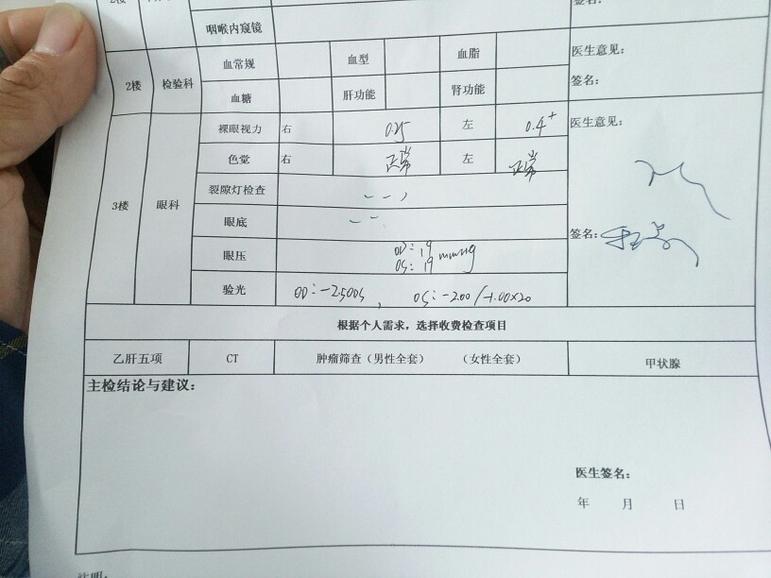 签名:
咽喉内窥镜
2楼 检验科 血常规 血型 血脂 医生意见:
血糖 肝功能 肾功能 签名:
3楼 眼科 裸眼视力 右 0.25 左 0.4+ 医生意见:
色觉 右 正常 左 正常
裂隙灯检查
眼底
眼压 OD: 19 OS: 19 mmHg 签名:
验光 OD: -2.50DS, OS: -2.00/-1.00×20
根据个人需求，选择收费检查项目
乙肝五项 CT 肿瘤筛查（男性全套） （女性全套） 甲状腺
主检结论与建议:
医生签名:
年 月 日